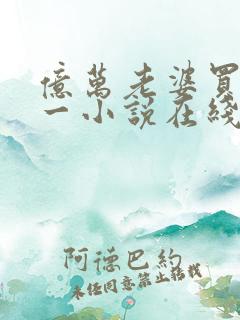 億萬老婆買
一小說在綫
阿德巴約
未经同意禁止转载